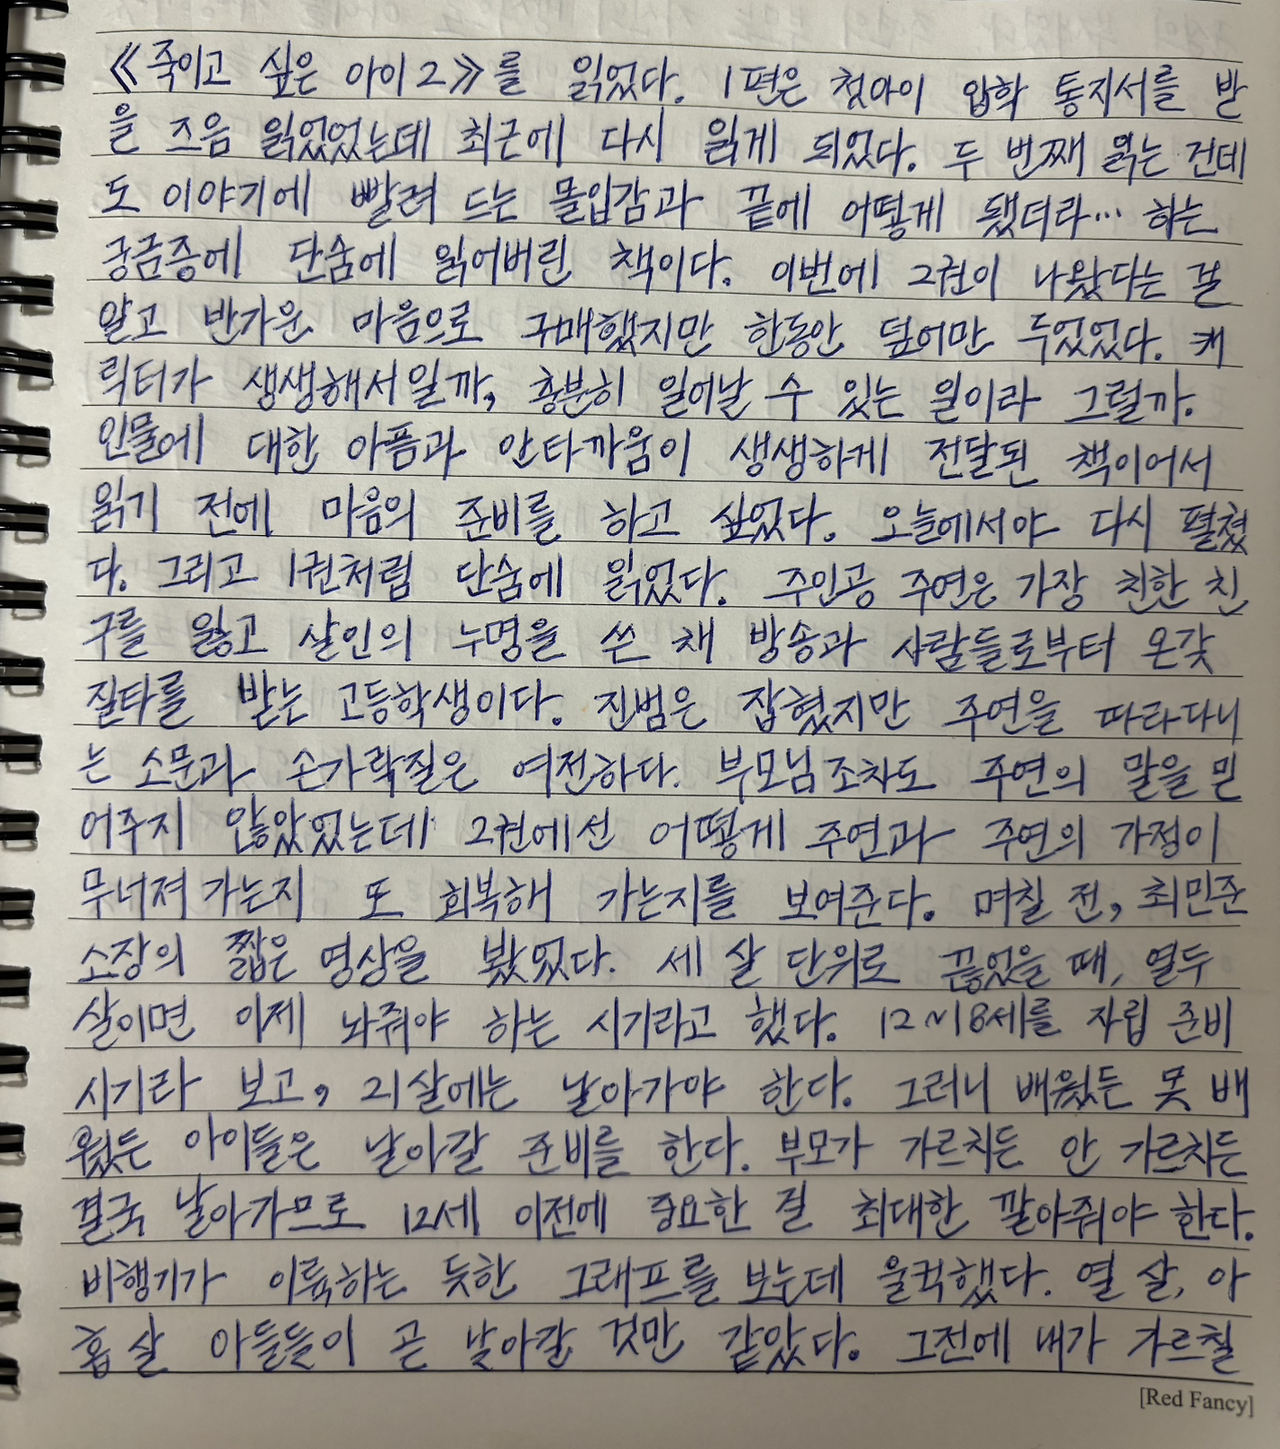 《죽이고 싶은 아이2》를 읽었다. 1편은 첫아이 입학 통지서를 받
을 즈음 읽었었는데 최근에 다시 읽게 되었다. 두 번째 읽는 건데
도 이야기에 빨려 드는 몰입감과 끝에 어떻게 됐더라… 하는
궁금증에 단숨에 읽어버린 책이다. 이번에 2권이 나왔다는 걸
알고 반가운 마음으로 구매했지만 한동안 덮어만 두었었다. 캐
릭터가 생생해서일까, 충분히 일어날 수 있는 일이라 그럴까.
인물에 대한 아픔과 안타까움이 생생하게 전달된 책이어서
읽기 전에 마음의 준비를 하고 싶었다. 오늘에서야 다시 펼쳤
다. 그리고 1권처럼 단숨에 읽었다. 주인공 주연은 가장 친한 친
구를 잃고 살인의 누명을 쓴 채 방송과 사람들로부터 온갖
질타를 받는 고등학생이다. 진범은 잡혔지만 주연을 따라다니
는 소문과 손가락질은 여전하다. 부모님조차도 주연의 말을 믿
어주지 않았었는데 2권에선 어떻게 주연과 주연의 가정이
무너져 가는지 또 회복해 가는지를 보여준다. 며칠 전, 최민준
소장의 짧은 영상을 봤었다. 세 살 단위로 끊었을 때, 열두
살이면 이제 놔줘야 하는 시기라고 했다. 12~18세를 자립 준비
시기라 보고, 21살에는 날아가야 한다. 그러니 배웠든 못 배
웠든 아이들은 날아갈 준비를 한다. 부모가 가르치든 안 가르치든
결국 날아가므로 12세 이전에 중요한 걸 최대한 깔아줘야 한다.
비행기가 이륙하는 듯한 그래프를 보는데 울컥했다. 열 살, 아
홉 살 아들들이 곧 날아갈 것만 같았다. 그전에 내가 가르칠
[Red Fancy]